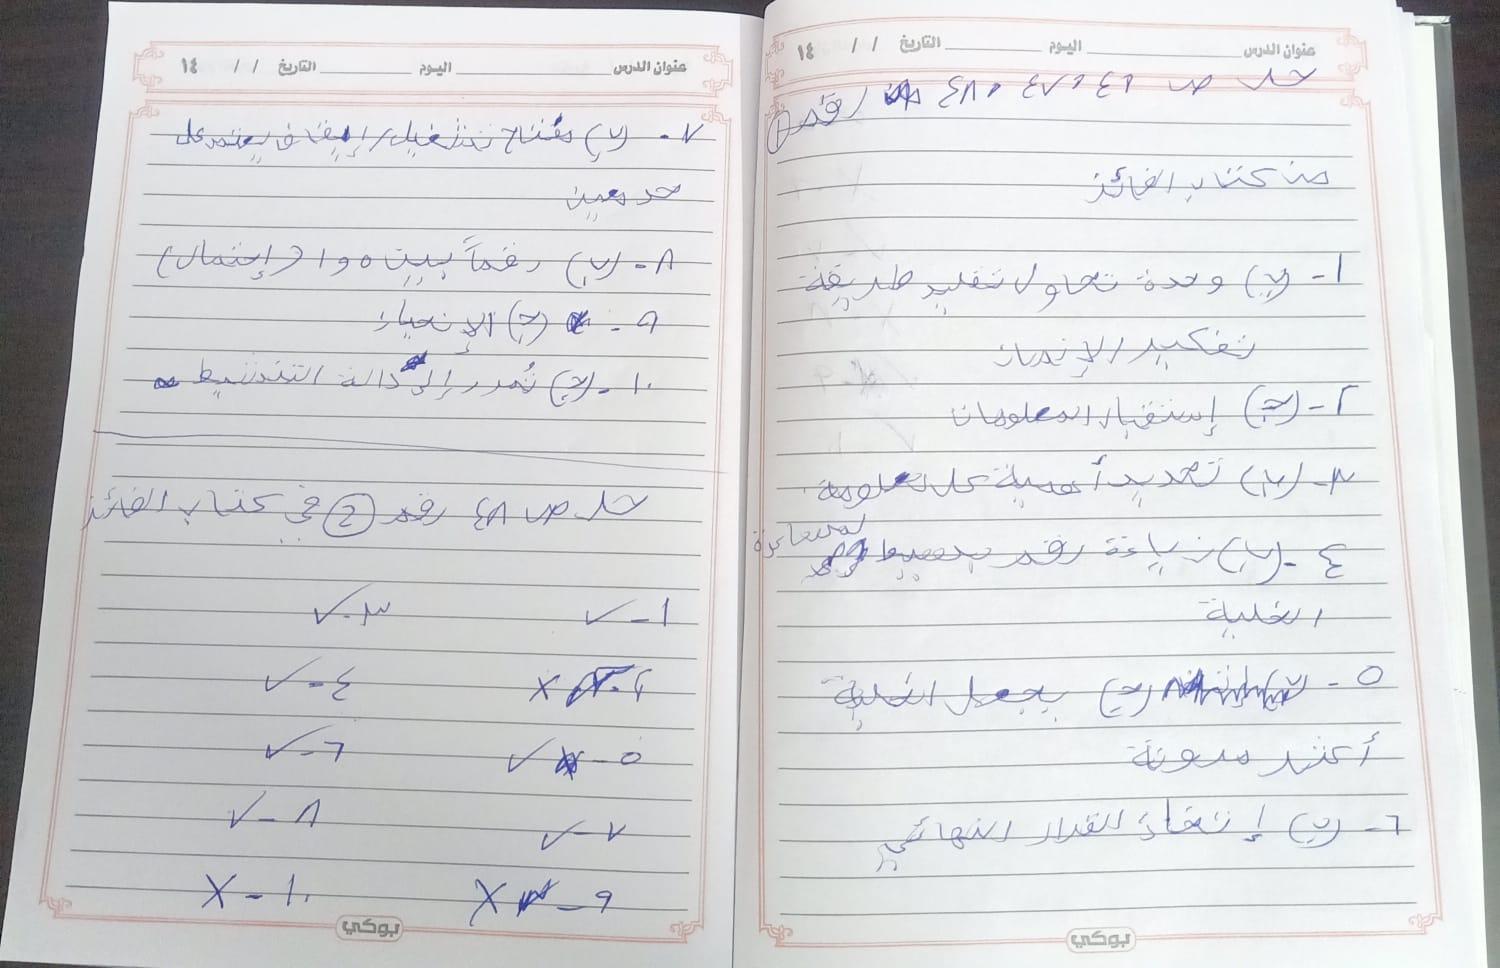 عنوان الدرس اليوم التاريخ / / ١٤
حل ص ٤٦ ، ٤٧ ، ٤٨ رقم ①
من كتاب الفائز
١ - (ب) وحدة تحاول تقليد طريقة
تفكير الإنسان
٢ - (ج) إستقبال المعلومات
٣ - (ب) تحديد أهمية كل معلومة
٤ - (ب) زيادة رقم بسيط لمساعدة
الخلية
٥ - (ج) يجعل الخلية
أكثر مرونة
٦ - (ب) إتخاذ القرار النهائي
بوكي
عنوان الدرس اليوم التاريخ / / ١٤
٧ - (ب) مفتاح تشغيل/إيقاف يعتمد على
حد معين
٨ - (ب) رقماً بين ٠ و ١ (إحتمال)
٩ - (ج) الإنحياز
١٠ - (ج) تُمرر إلى دالة التنشيط
حل ص ٤٨ رقم ② في كتاب الفائز
١ - ✓ ٣ - ✓
٢ - X ٤ - ✓
٥ - ✓ ٦ - ✓
٧ - ✓ ٨ - ✓
٩ - X ١٠ - X
بوكي